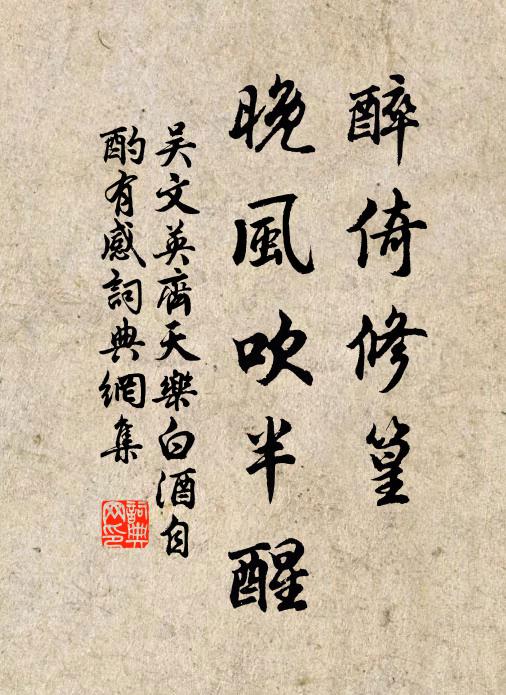 醉倚修篁
晚風吹半醒
吳文英齊天樂白酒自
酌有感詞典網集
詞典
网印